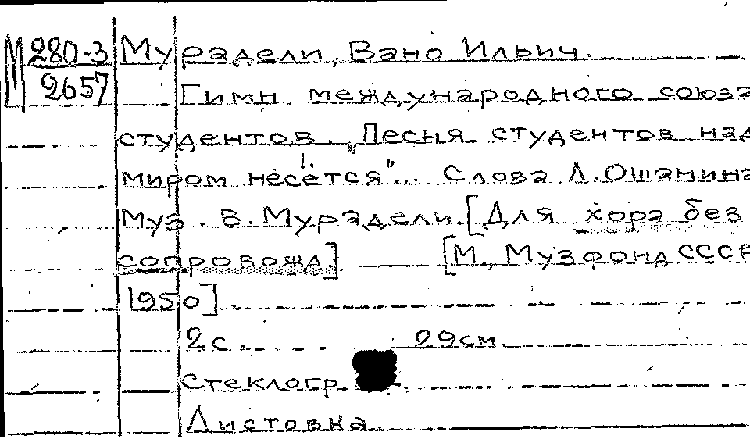 М 280-3 Мурадели, Вано Ильич.
2657 Гимн международного союза
студентов. „Песня студентов над
миром несётся"... Слова Л. Ошанина
Муз. В. Мурадели. [Для хора без
сопровожд] [М., Музфонд СССР
1950]
2 с. 29 см
Стеклогр.
Листовка